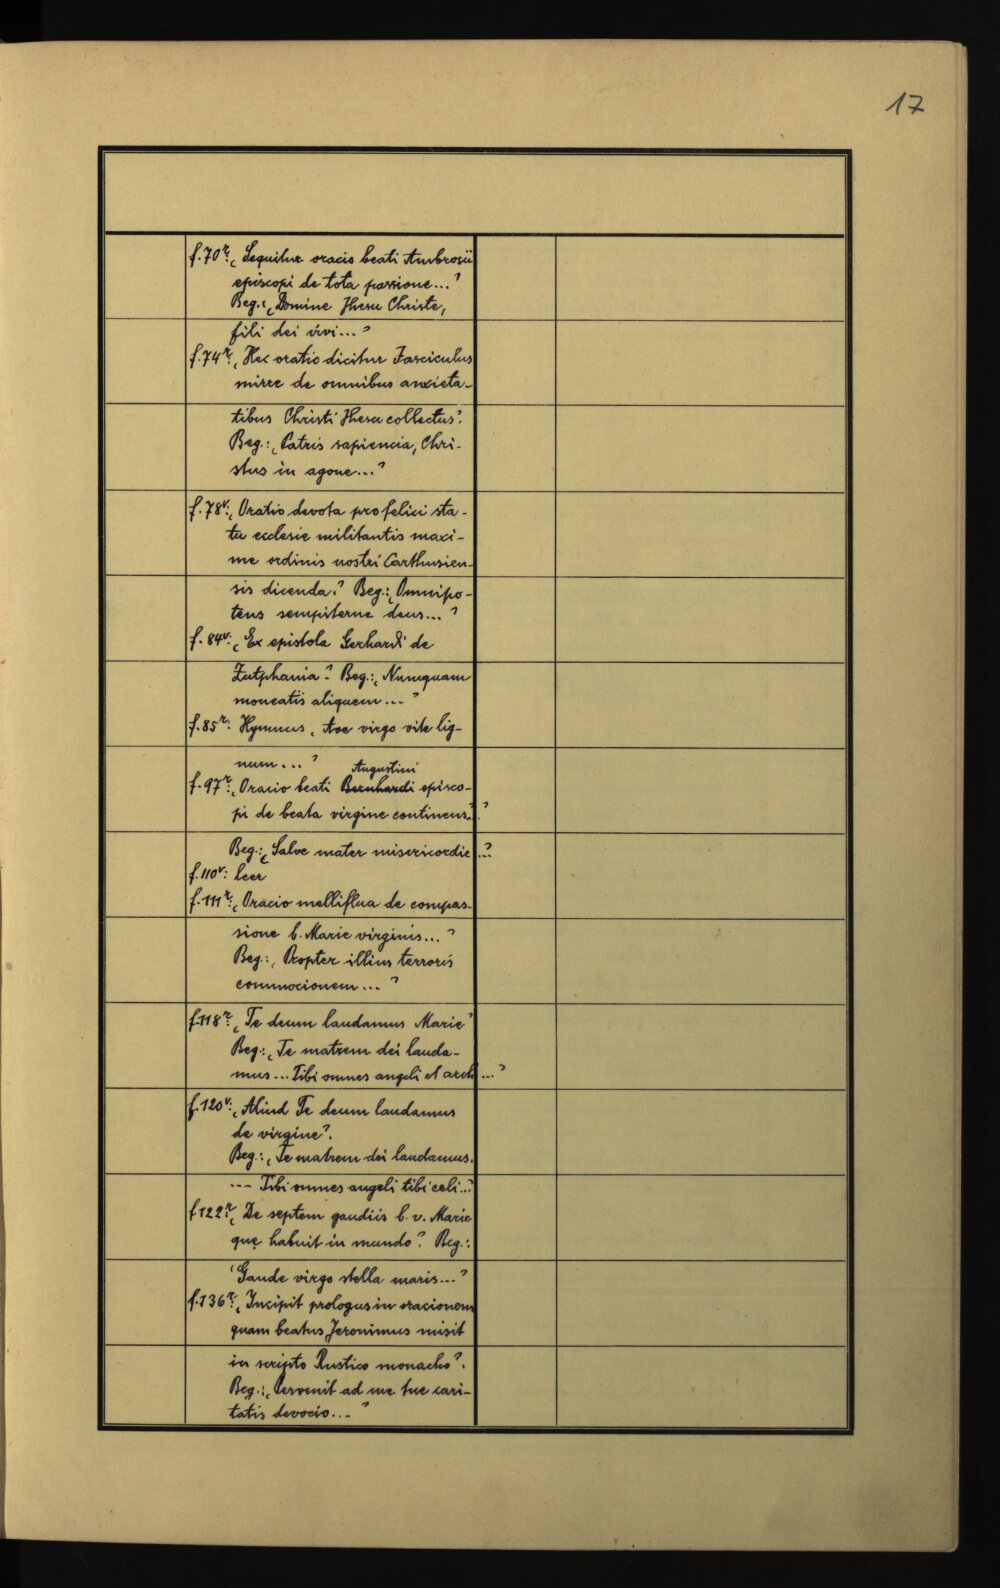 17
f. 70r: „Sequitur oracio beati Ambrosii
episcopi de tota passione..."
Beg.: „Domine Jhesu Christe,
fili dei vivi..."
f. 74r: „Hec oratio dicitur Fasciculus
mirre de omnibus anxieta-
tibus Christi Jhesu collectus".
Beg.: „Patris sapiencia, Chri-
stus in agone..."
f. 78v: „Oratio devota pro felici sta-
tu ecclesie militantis maxi-
me ordinis nostri Carthusien-
sis dicenda". Beg.: „Omnipo-
tens sempiterne deus..."
f. 84v: „Ex epistola Gerhardi de
Zutphania". Beg.: „Numquam
moneatis aliquem..."
f. 85r: Hymnus „Ave virgo vite lig-
num..."
Augustini
f. 97r: „Oracio beati Bernhardi episco-
pi de beata virgine continens.."
Beg.: „Salve mater misericordie ..."
f. 110v: leer
f. 111r: „Oracio melliflua de compas-
sione b. Marie virginis..."
Beg.: „Propter illius terroris
commocionem..."
f. 118r: „Te deum laudamus Marie"
Beg.: „Te matrem dei lauda-
mus... Tibi omnes angeli et arch ..."
f. 120v: „Aliud Te deum laudamus
de virgine".
Beg.: „Te matrem dei laudamus.
... Tibi omnes angeli tibi celi..."
f. 122r: „De septem gaudiis b. v. Marie
quę habuit in mundo". Beg.:
„Gaude virgo stella maris..."
f. 136r: „Incipit prologus in oracionem
quam beatus Jeronimus misit
in scripto Rustico monacho".
Beg.: „Pervenit ad me tue cari-
tatis devocio..."